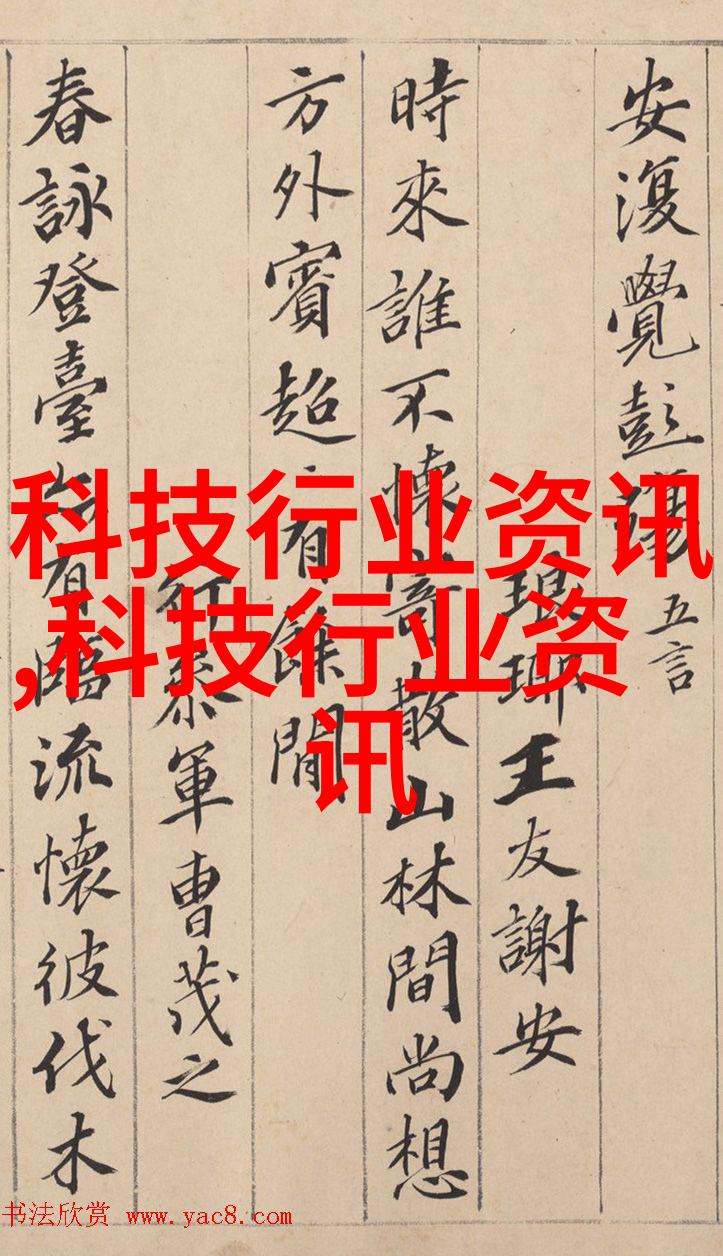 安復覺彭殤 五言
琅琊王友謝安
時來誰不懷寄散山林間尚想
方外賓超有餘閒
行叅軍曹茂之
春詠登臺亦有臨流懷彼伐木
科技行业资讯
,科技行业资
讯
书法欣赏 www.yac8.com